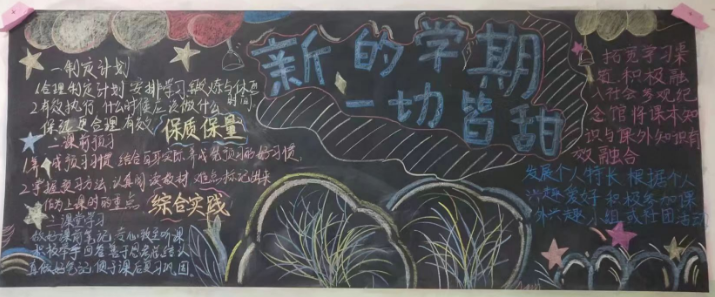 新的学期
一切皆甜
一制定计划
1合理制定计划 安排学习 锻炼与休息时间
2有效执行 什么时候 应该做什么
保证更合理有效
保质保量
二课前预习
1养成预习习惯 结合自身实际 养成预习的好习惯
2掌握预习方法 认真阅读教材 难点标记出来
作为上课时的重点
综合实践
三课堂学习
做好课前笔记 专心致志听课
真做好笔记便于课后复习巩固
拓宽学习渠
道 积极融
入社会 参观纪
念馆 将课本知
识与课外知识有
效融合
发展个人特长 根据个人
兴趣爱好 积极参加课
外兴趣小组或社团活动